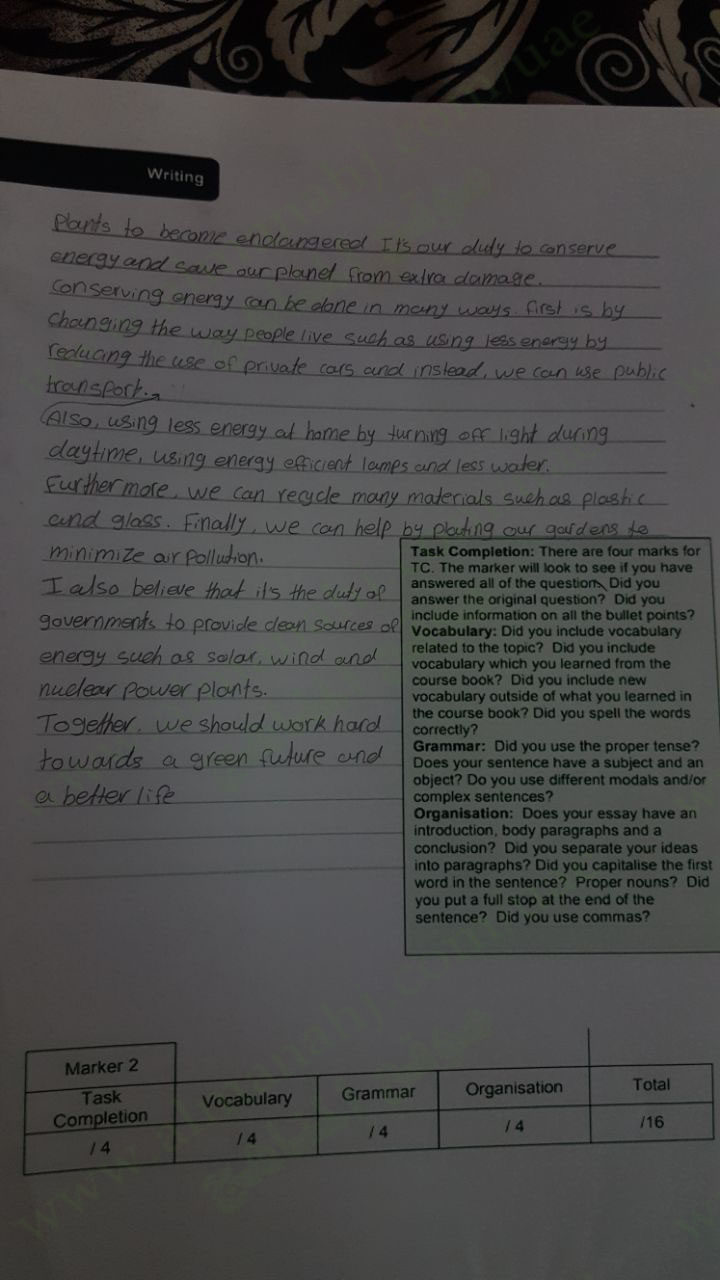 Writing
Plants to become endangered It's our duty to conserve
energy and save our planet from extra damage.
Conserving energy can be done in many ways. first is by
changing the way people live such as using less energy by
reducing the use of private cars and instead, we can use public
transport.
Also, using less energy at home by turning off light during
daytime, using energy efficient lamps and less water.
Furthermore, we can recycle many materials such as plastic
and glass. Finally, we can help by plating our gardens to
minimize air pollution.
I also believe that it's the duty of
governments to provide clean sources of
energy such as solar, wind and
nuclear power plants.
Together, we should work hard
towards a green future and
a better life
Task Completion: There are four marks for
TC. The marker will look to see if you have
answered all of the question. Did you
answer the original question? Did you
include information on all the bullet points?
Vocabulary: Did you include vocabulary
related to the topic? Did you include
vocabulary which you learned from the
course book? Did you include new
vocabulary outside of what you learned in
the course book? Did you spell the words
correctly?
Grammar: Did you use the proper tense?
Does your sentence have a subject and an
object? Do you use different modals and/or
complex sentences?
Organisation: Does your essay have an
introduction, body paragraphs and a
conclusion? Did you separate your ideas
into paragraphs? Did you capitalise the first
word in the sentence? Proper nouns? Did
you put a full stop at the end of the
sentence? Did you use commas?
Marker 2
Task Completion Vocabulary Grammar Organisation Total
/ 4 / 4 / 4 / 4 /16